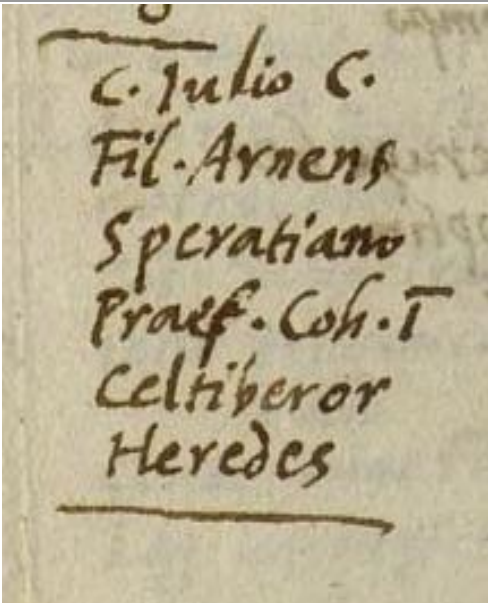 C. Julio C.
Fil. Arnens
Speratiano
Praef. Coh. Ī
Celtiberor
Heredes